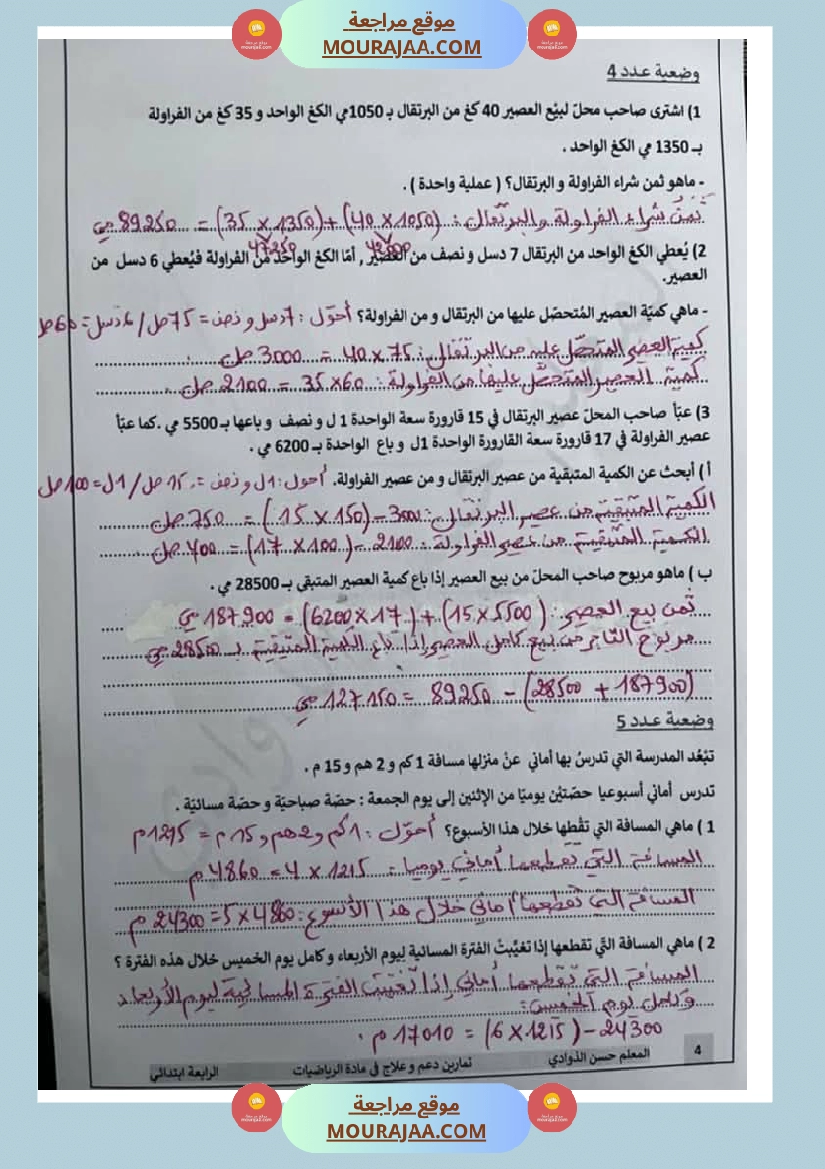 موقع مراجعة
MOURAJAA.COM
وضعية عدد 4
1) اشترى صاحب محلّ لبيْع العصير 40 كغ من البرتقال بـ 1050مي الكغ الواحد و 35 كغ من الفراولة
بـ 1350 مي الكغ الواحد .
- ماهو ثمن شراء الفراولة و البرتقال؟ ( عملية واحدة ) .
ثمن شراء الفراولة والبرتقال : (1050 × 40)+(1350 × 35) = 89250 مي
42000 47250
2) يُعطي الكغ الواحد من البرتقال 7 دسل و نصف من العصير , أمّا الكغ الواحد من الفراولة فيُعطي 6 دسل من
العصير.
- ماهي كميّة العصير المُتحصّل عليها من البرتقال و من الفراولة؟ أحوّل : 7دسل و نصف = 75صل / 6دسل = 60صل
كمية العصير المتحصّل عليه من البرتقال : 75 × 40 = 3000 صل
كمية العصير المتحصّل عليها من الفراولة : 60 × 35 = 2100 صل
3) عبّأ صاحب المحلّ عصير البرتقال في 15 قارورة سعة الواحدة 1 ل و نصف و باعها بـ 5500 مي .كما عبّأ
عصير الفراولة في 17 قارورة سعة القارورة الواحدة 1ل و باع الواحدة بـ 6200 مي .
أ ) أبحث عن الكمية المتبقية من عصير البرتقال و من عصير الفراولة. أحول : 1ل و نصف = 150صل / 1ل = 100صل
الكمية المتبقية من عصير البرتقال : 3000 – (150 × 15) = 750 صل
الكمية المتبقية من عصير الفراولة : 2100 – (100 × 17) = 400 صل
ب ) ماهو مربوح صاحب المحلّ من بيع العصير إذا باع كمية العصير المتبقى بـ 28500 مي .
ثمن بيع العصير : (5500 × 15) + (17 × 6200) = 187900 مي
مربوح التاجر من بيع كامل العصير إذا باع الكمية المتبقية بـ 28500 مي
(187900 + 28500) – 89250 = 127150 مي
وضعية عدد 5
تبْعُد المدرسة التي تدرسُ بها أماني عنْ منزلها مسافة 1 كم و 2 هم و 15 م .
تدرس أماني أسبوعيا حصّتيْن يوميّا من الإثنين إلى يوم الجمعة : حصّة صباحيّة و حصّة مسائيّة .
1 ) ماهي المسافة التي تقْطها خلال هذا الأسبوع؟ أحوّل : 1كم و 2هم و 15م = 1215 م
المسافة التي تقطعها أماني يوميا : 1215 × 4 = 4860 م
المسافة التي تقطعها أماني خلال هذا الأسبوع : 4860 × 5 = 24300 م
2 ) ماهي المسافة التّي تقطعها إذا تغيّبتْ الفترة المسائية ليوم الأربعاء و كامل يوم الخميس خلال هذه الفترة ؟
المسافة التي تقطعها أماني إذا تغيبت الفترة المسائية ليوم الأربعاء
و كامل يوم الخميس :
24300 – (1215 × 6) = 17010 م .
4
المعلم حسن الذوادي
تمارين دعم و علاج في مادة الرياضيات
الرابعة ابتدائي
موقع مراجعة
MOURAJAA.COM